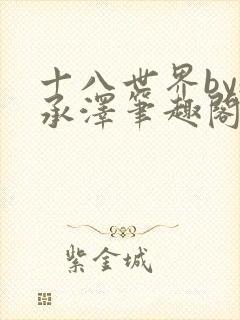 十八世界by
承澤筆趣閣
紫金城